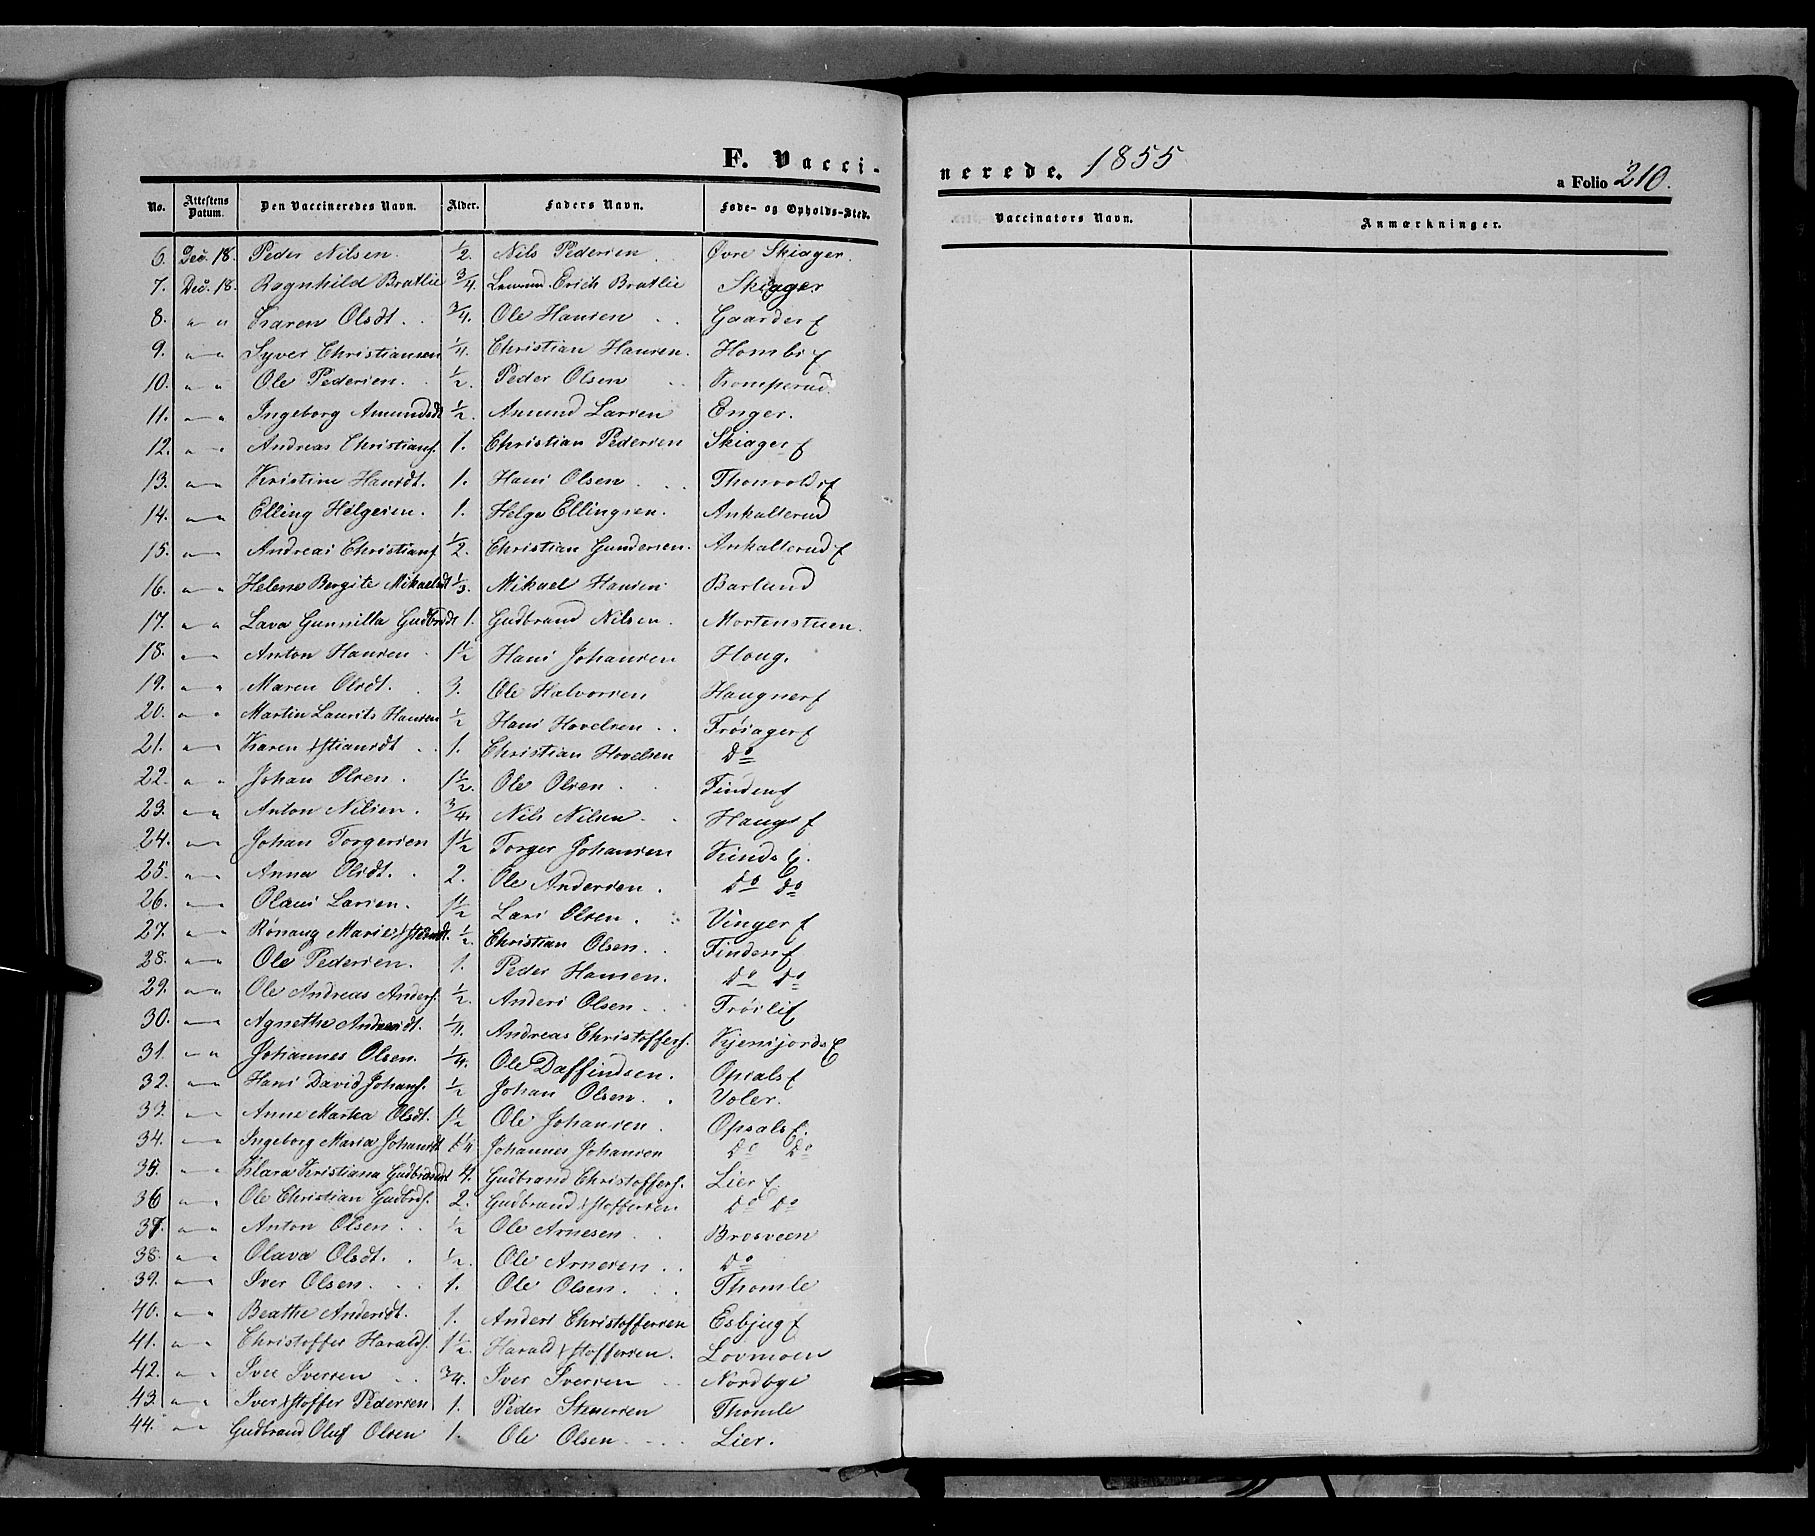 F. Vacci-
nerede. 1855
a Folio 210.
No. Attestens Datum. Den Vaccineredes Navn. Alder. Faders Navn. Føde- og Opholds-Sted.
Vaccinators Navn. Anmærkninger.
6. Dec. 18. Peder Nilsen. 1/2. Nils Pedersen Øvre Skiager.
7. Dec. 18. Ragnhild Bratlie 3/4. Erich Bratlie Skiager
8. " " Karen Olsdt. 3/4. Ole Hansen Gaarder f
9. " " Syver Christiansen 1/4. Christian Hansen. Hombs f
10. " " Ole Pedersen. 1/2. Peder Olsen Komperud.
11. " " Ingeborg Amundsdt 1/2. Amund Larsen Enger.
12. " " Andreas Christians. 1. Christian Pedersen Skiager f
13. " " Kristine Hansdt. 1. Hans Olsen
14. " " Elling Helgesen. 1. Helge Ellingsen. Ankalterud
15. " " Andreas Christians. 1/2. Christian Gundersen. Ankalterud f
16. " " Helene Bergite Mikaelsdt 1/3. Mikael Hansen Barlund
17. " " Lava Gunnilla Gudbrdt 1. Gudbrand Nilsen. Mortenstuen.
18. " " Anton Hansen 1 1/2 Hans Johansen Houg.
19. " " Maren Olsdt. 3. Ole Halvorsen Haugner f
20. " " Martin Laurits Hansen 1/2 Hans Hovelsen Frøsager f
21. " " Karen Xstiansdt 1. Christian Hovelsen Do
22. " " Johan Olsen. 1 1/2. Ole Olsen. Finden f
23. " " Anton Nilsen. 3/4. Nils Nilsen. Haugs f
24. " " Johan Torgersen 1 1/2 Torger Johansen Kinds E.
25. " " Anna Olsdt. 2. Ole Andersen. Do Do
26. " " Olaus Larsen. 1 1/2 Lars Olsen. Vinger f
27. " " Rønaug Marie 1/2. Christian Olsen. Finden f
28. " " Ole Pedersen. 1. Peder Hansen. Do Do
29. " " Ole Andreas Anders. 1/2 Anders Olsen Frøili f
30. " " Agnethe Andersdt. 1/4. Andreas Christoffers. Kjensjords E
31. " " Johannes Olsen. 1/4. Ole Daffindsen. Opsals f
32. " " Hans David Johans. 1/2 Johan Olsen. Voler.
33. " " Anne Marthea Olsdt. 1 1/2 Ole Johansen. Opsals f.
34. " " Ingeborg Maria Johansdt 1 1/4 Johannes Johansen Do Do
35. " " Klara Kristiana Gudbrandsdt 4. Gudbrand Christoffers. Lier f
36 " " Ole Christian Gudbrds. 2. Gudbrand Xstoffersen Do Do
37. " " Anton Olsen. 1/2 Ole Arnesen Brosveen
38. " " Olava Olsdt. 1/2. Ole Arnesen Do
39. " " Iver Olsen. 1. Ole Olsen. Thomle
40. " " Beathe Andersdt. 1. Anders Christoffersen Esbjug f
41. " " Christoffer Haralds. 1 1/2. Harald Xstoffersen. Lovmoen
42. " " Iver Iversen 3/4. Iver Iversen Nordbye
43. " " Iver Xstoffer Pedersen 1. Peder Stenersen Thomle
44. " " Gudbrand Oluf Olsen 1. Ole Olsen. Lier.